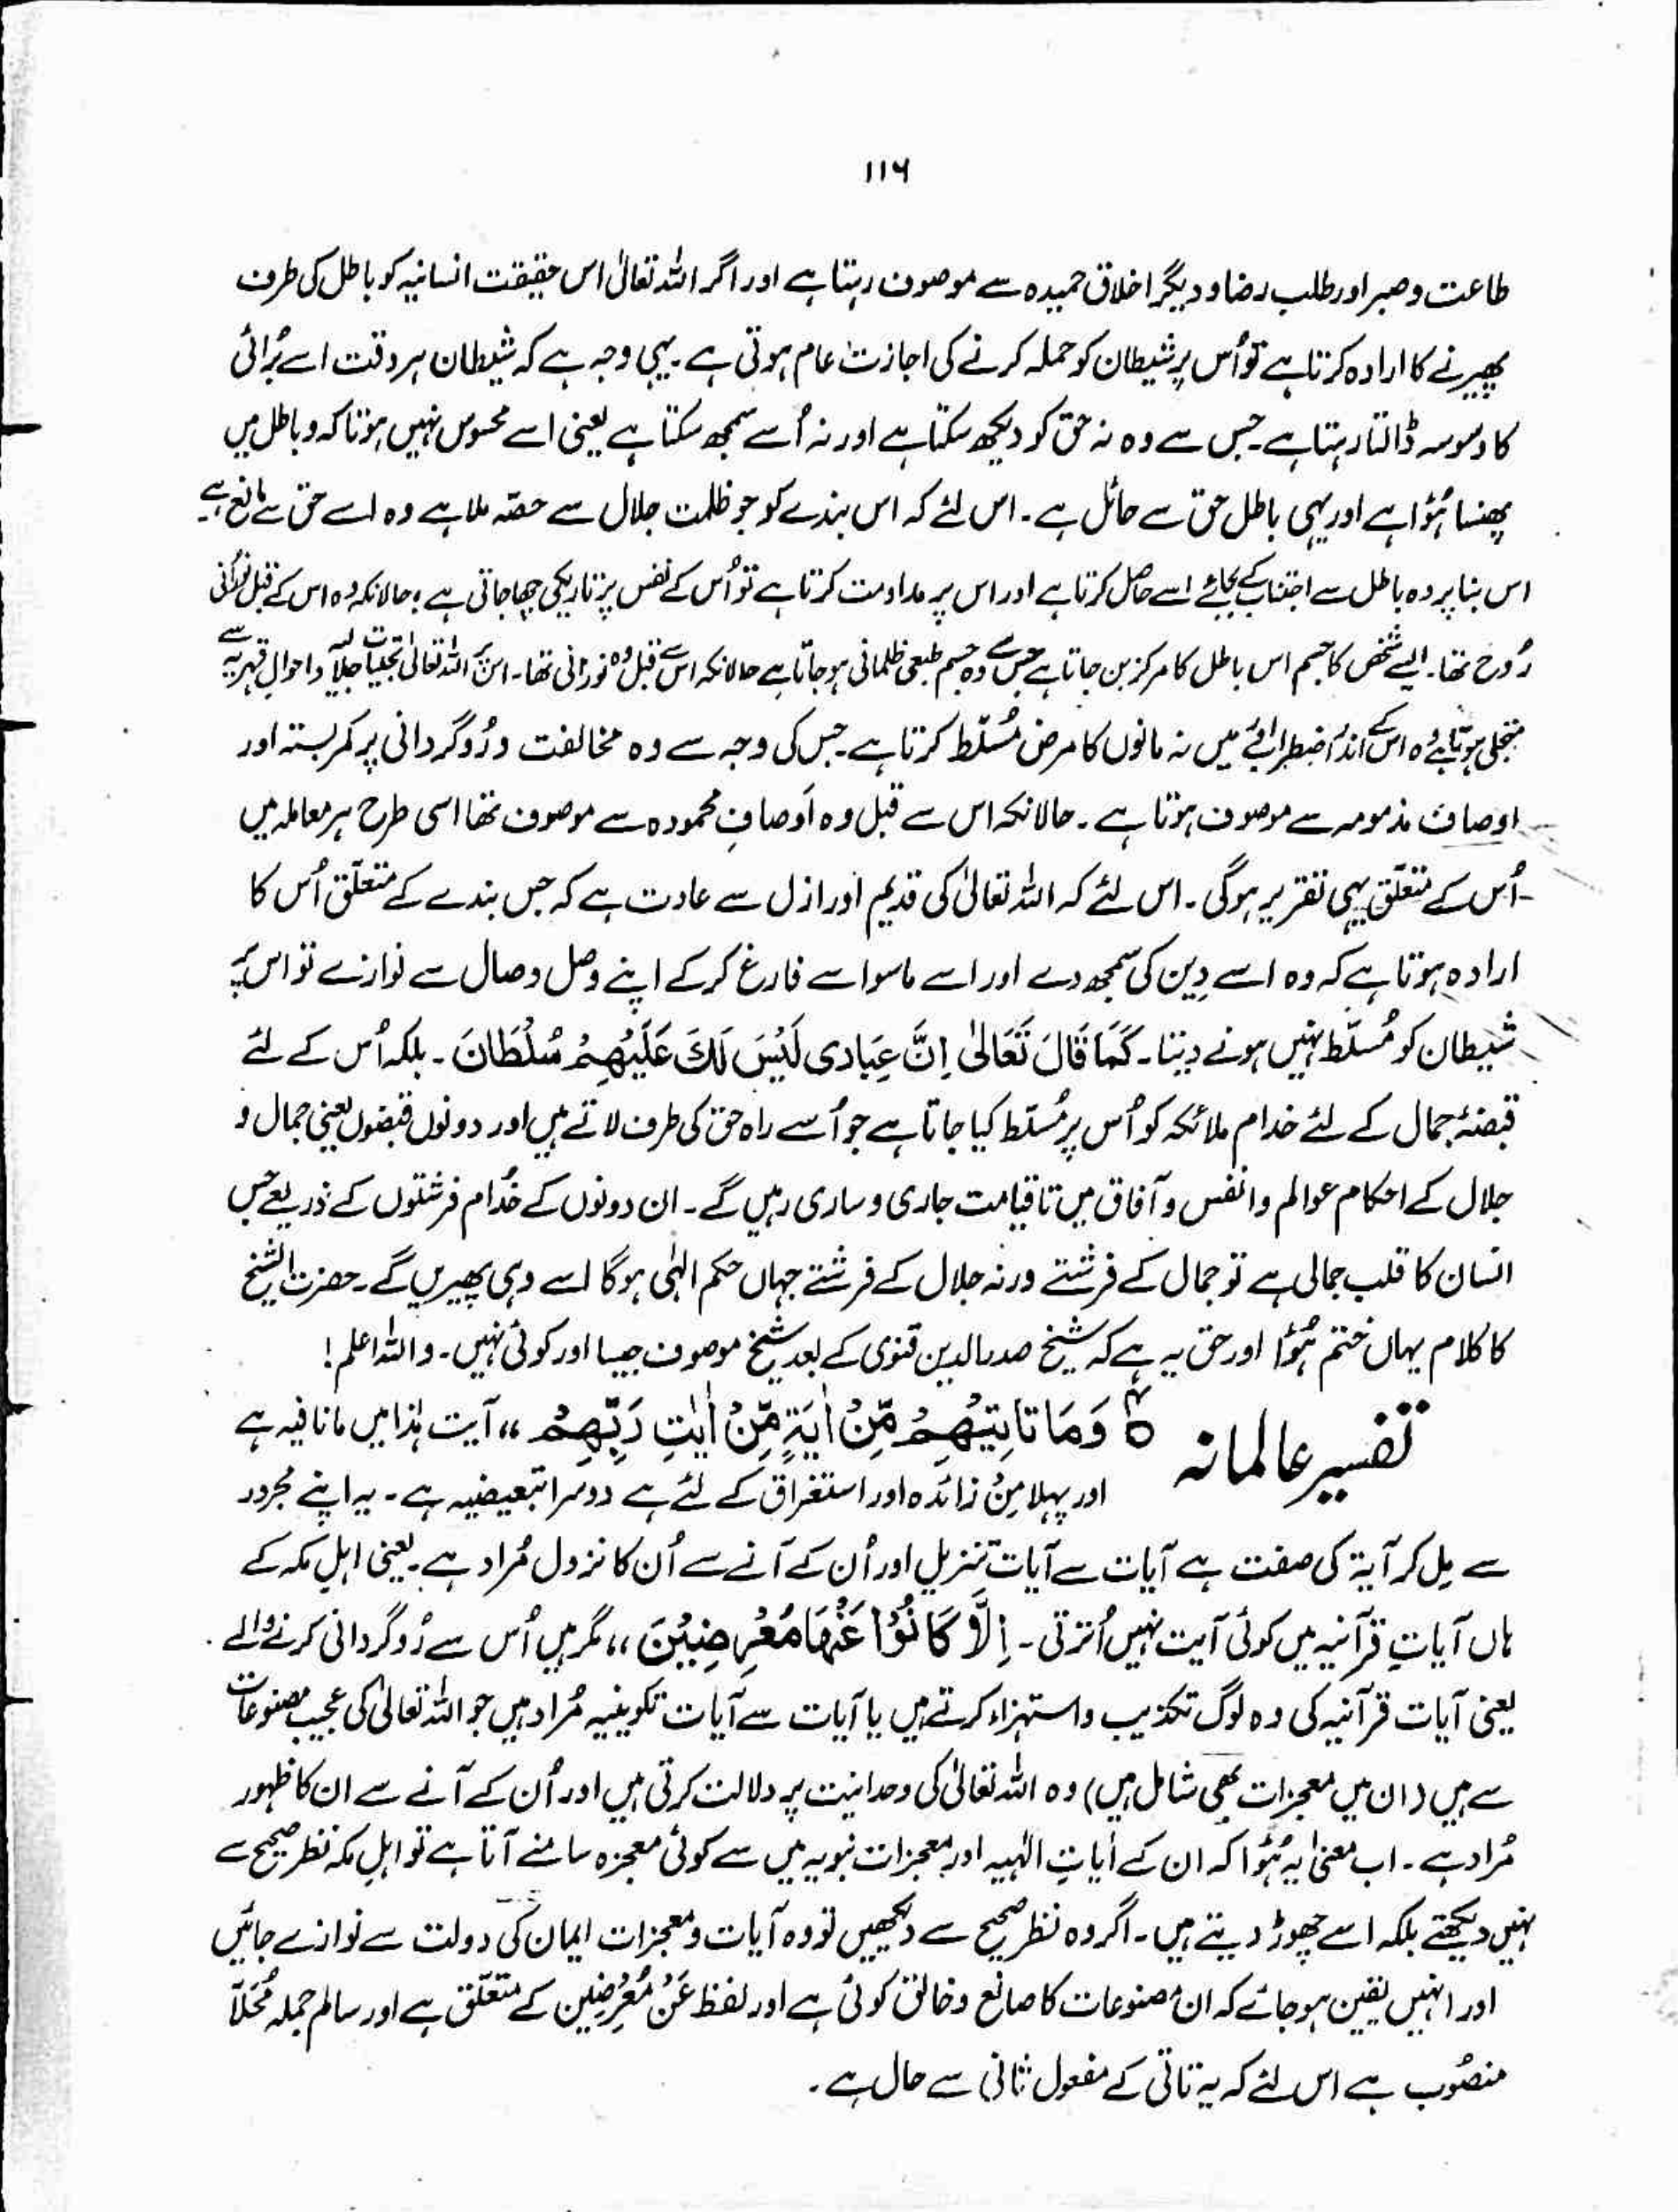 ۱۱۶
طاعت و صبر اور طلب رضا و دیگر اخلاق حمیدہ سے موصوف رہتا ہے اور اگر اللہ تعالیٰ اس حقیقت انسانیہ کو باطل کی طرف
پھیرنے کا ارادہ کرتا ہے تو اُس پر شیطان کو حملہ کرنے کی اجازت عام ہوتی ہے۔ یہی وجہ ہے کہ شیطان ہر وقت اسے بُرائی
کا وسوسہ ڈالتا رہتا ہے۔ جس سے وہ نہ حق کو دیکھ سکتا ہے اور نہ اُسے سمجھ سکتا ہے یعنی اسے محسوس نہیں ہوتا کہ وہ باطل میں
پھنسا ہُوا ہے اور یہی باطل حق سے حائل ہے۔ اس لئے کہ اس بندے کو جو ظلمت جلال سے حصّہ ملا ہے وہ اسے حق سے مانع ہے۔
اس بنا پر وہ باطل سے اجتناب کے بجائے اسے حاصل کرتا ہے اور اس پر مداومت کرتا ہے تو اُس کے نفس پر تاریکی چھا جاتی ہے؛ حالانکہ وہ اس کے قبل نورانی
رُوح تھا۔ ایسے شخص کا جسم اس باطل کا مرکز بن جاتا ہے جس سے وہ جسم طبعی ظلمانی ہو جاتا ہے حالانکہ اس سے قبل وہ نورانی تھا۔ اس پر اللہ تعالیٰ تجلیات جلالیہ و احوال قہریہ سے
متجلی ہوتا ہے وہ اس کے اندر اضطرابئے میں نہ مانوں کا مرض مُسلّط کرتا ہے۔ جس کی وجہ سے وہ مخالفت و رُوگردانی پر کمربستہ اور
اوصاف مذمومہ سے موصوف ہوتا ہے۔ حالانکہ اس سے قبل وہ اَوصافِ محمودہ سے موصوف تھا اسی طرح ہر معاملہ میں
اُس کے متعلّق یہی تقریر ہوگی۔ اس لئے کہ اللہ تعالیٰ کی قدیم اور ازل سے عادت ہے کہ جس بندے کے متعلّق اُس کا
ارادہ ہوتا ہے کہ وہ اسے دِین کی سمجھ دے اور اسے ماسوا سے فارغ کرکے اپنے وصل وصال سے نوازے تو اس پر
شیطان کو مُسلّط نہیں ہونے دیتا۔ کَمَا قَالَ تَعَالیٰ اِنَّ عِبَادی لَیْسَ لَكَ عَلَیْهِمْ سُلْطَانَ۔ بلکہ اُس کے لئے
قبضۂ جمال کے لئے خدام ملائکہ کو اُس پر مُسلّط کیا جاتا ہے جو اُسے راہ حق کی طرف لاتے ہیں اور دونوں قبضوں یعنی جمال و
جلال کے احکام عوالم و انفس و آفاق میں تا قیامت جاری و ساری رہیں گے۔ ان دونوں کے خُدام فرشتوں کے ذریعے جس
انسان کا قلب جمالی ہے تو جمال کے فرشتے ورنہ جلال کے فرشتے جہاں حکم الٰہی ہوگا اسے وہی پھیریں گے۔ حضرت الشیخ
کا کلام یہاں ختم ہُوا اور حق یہ ہے کہ شیخ صدرالدین قنوی کے بعد شیخ موصوف جیسا اور کوئی نہیں۔ واللہ اعلم!
تفسیر عالمانہ وَمَا تَاتِیْهِمْ مِّنْ اٰیَةٍ مِّنْ اٰیٰتِ رَبِّهِمْ ،، آیت ہٰذا میں ما نافیہ ہے
اور پہلا مِنْ زائدہ اور استغراق کے لئے ہے دوسرا تبعیضیہ ہے۔ یہ اپنے مجرور
سے مِل کر آیۃ کی صفت ہے آیات سے آیات تنزیل اور اُن کے آنے سے اُن کا نزول مُراد ہے۔ یعنی اہلِ مکہ کے
ہاں آیاتِ قرآنیہ میں کوئی آیت نہیں اُترتی۔ اِلَّا كَانُوْا عَنْهَا مُعْرِضِیْنَ ،، مگر ہیں اُس سے رُوگردانی کرنے والے۔
یعنی آیات قرآنیہ کی وہ لوگ تکذیب و استہزاء کرتے ہیں یا آیات سے آیات تکوینیہ مُراد ہیں جو اللہ تعالیٰ کی عجیب مصنوعات
سے ہیں (ان میں معجزات بھی شامل ہیں) وہ اللہ تعالیٰ کی وحدانیت پر دلالت کرتی ہیں اور اُن کے آنے سے ان کا ظہور
مُراد ہے۔ اب معنیٰ یہ ہُوا کہ ان کے آیاتِ الٰہیہ اور معجزات نبویہ میں سے کوئی معجزہ سامنے آتا ہے تو اہلِ مکہ نظر صحیح سے
نہیں دیکھتے بلکہ اسے چھوڑ دیتے ہیں۔ اگر وہ نظر صحیح سے دیکھیں تو وہ آیات و معجزات ایمان کی دولت سے نوازے جائیں
اور انہیں یقین ہو جائے کہ ان مصنوعات کا صانع و خالق کوئی ہے اور لفظ عَنْ مُعْرِضِیْن کے متعلّق ہے اور سالم جملہ مُحَلّاً
منصُوب ہے اس لئے کہ یہ تاتی کے مفعول ثانی سے حال ہے۔